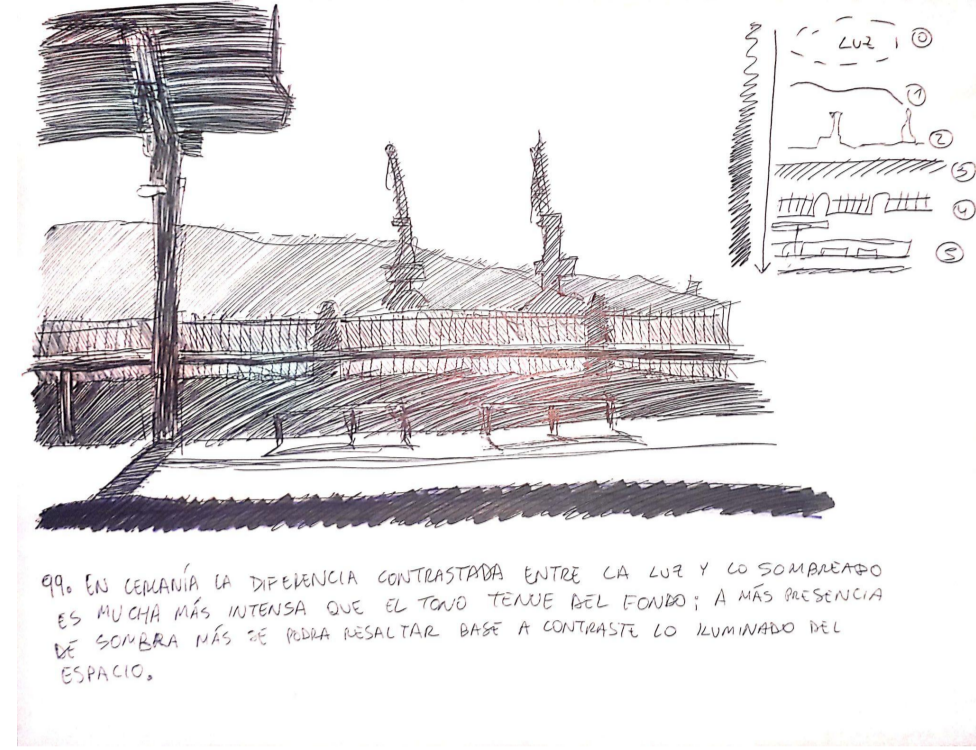 LUZ 0
1
2
3
4
5
99. EN CERCANÍA LA DIFERENCIA CONTRASTADA ENTRE LA LUZ Y LO SOMBREADO
ES MUCHA MÁS INTENSA QUE EL TONO TENUE DEL FONDO; A MÁS PRESENCIA
DE SOMBRA MÁS SE PODRA RESALTAR BASE A CONTRASTE LO ILUMINADO DEL
ESPACIO.